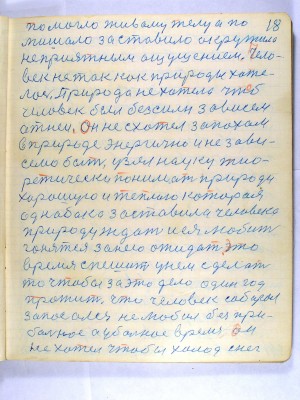 помогло живому телу а по 18
мишало заставило окружило
неприятным ощущением. Чело-
век не так как природы хоте-
лось. Природа не хотела чтоб
человек был бессилн зависем
от неи. Он не схотел запохал
в природе энергично и не зави-
село быть, узял науку тио-
ретически понимат природу
хорошую и теплаю которая
однобако заставила человека
природу ждат и ея любит
гонятся за нею ожидат, это
время спешит у нем сделат
то чтобы за это дело один год
прожит, что человек собою
запасался не любил без при-
балное а убалное время он
не хотел чтобы холод снег